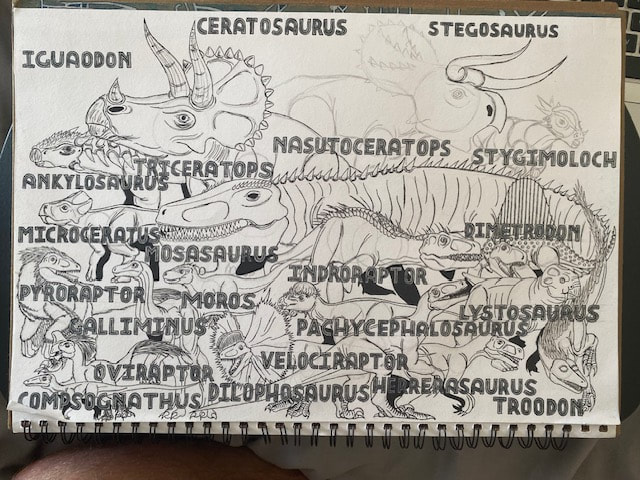 CERATOSAURUS
STEGOSAURUS
IGUAODON
NASUTOCERATOPS
STYGIMOLOCH
TRICERATOPS
ANKYLOSAURUS
MICROCERATUS
DIMETRODON
MOSASAURUS
INDRORAPTOR
PYRORAPTOR
MOROS
LYSTOSAURUS
GALLIMINUS
PACHYCEPHALOSAURUS
VELOCIRAPTOR
OVIRAPTOR
DILOPHOSAURUS
HERRERASAURUS
COMPSOGNATHUS
TROODON